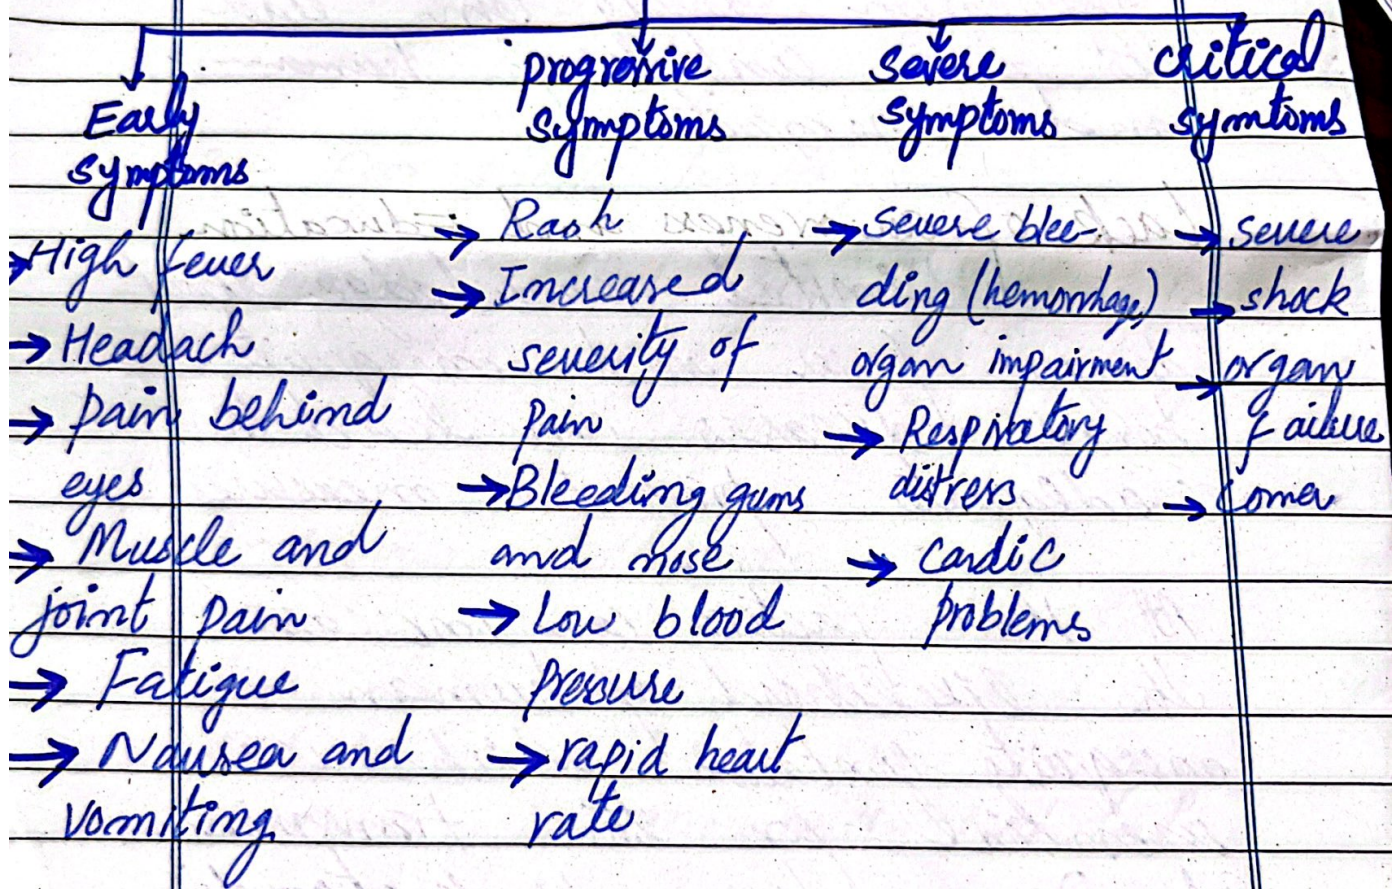 Early
symptoms
High fever
Headach
pain behind
eyes
Muscle and
joint pain
Fatigue
Nausea and
vomiting
progressive
symptoms
Rash
Increased
severity of
pain
Bleeding gums
and nose
Low blood
pressure
rapid heart
rate
severe
symptoms
severe blee-
ding (hemorrhage)
organ impairment
Respiratory
distress
cardic
problems
critical
symtoms
severe
shock
organ
failure
coma